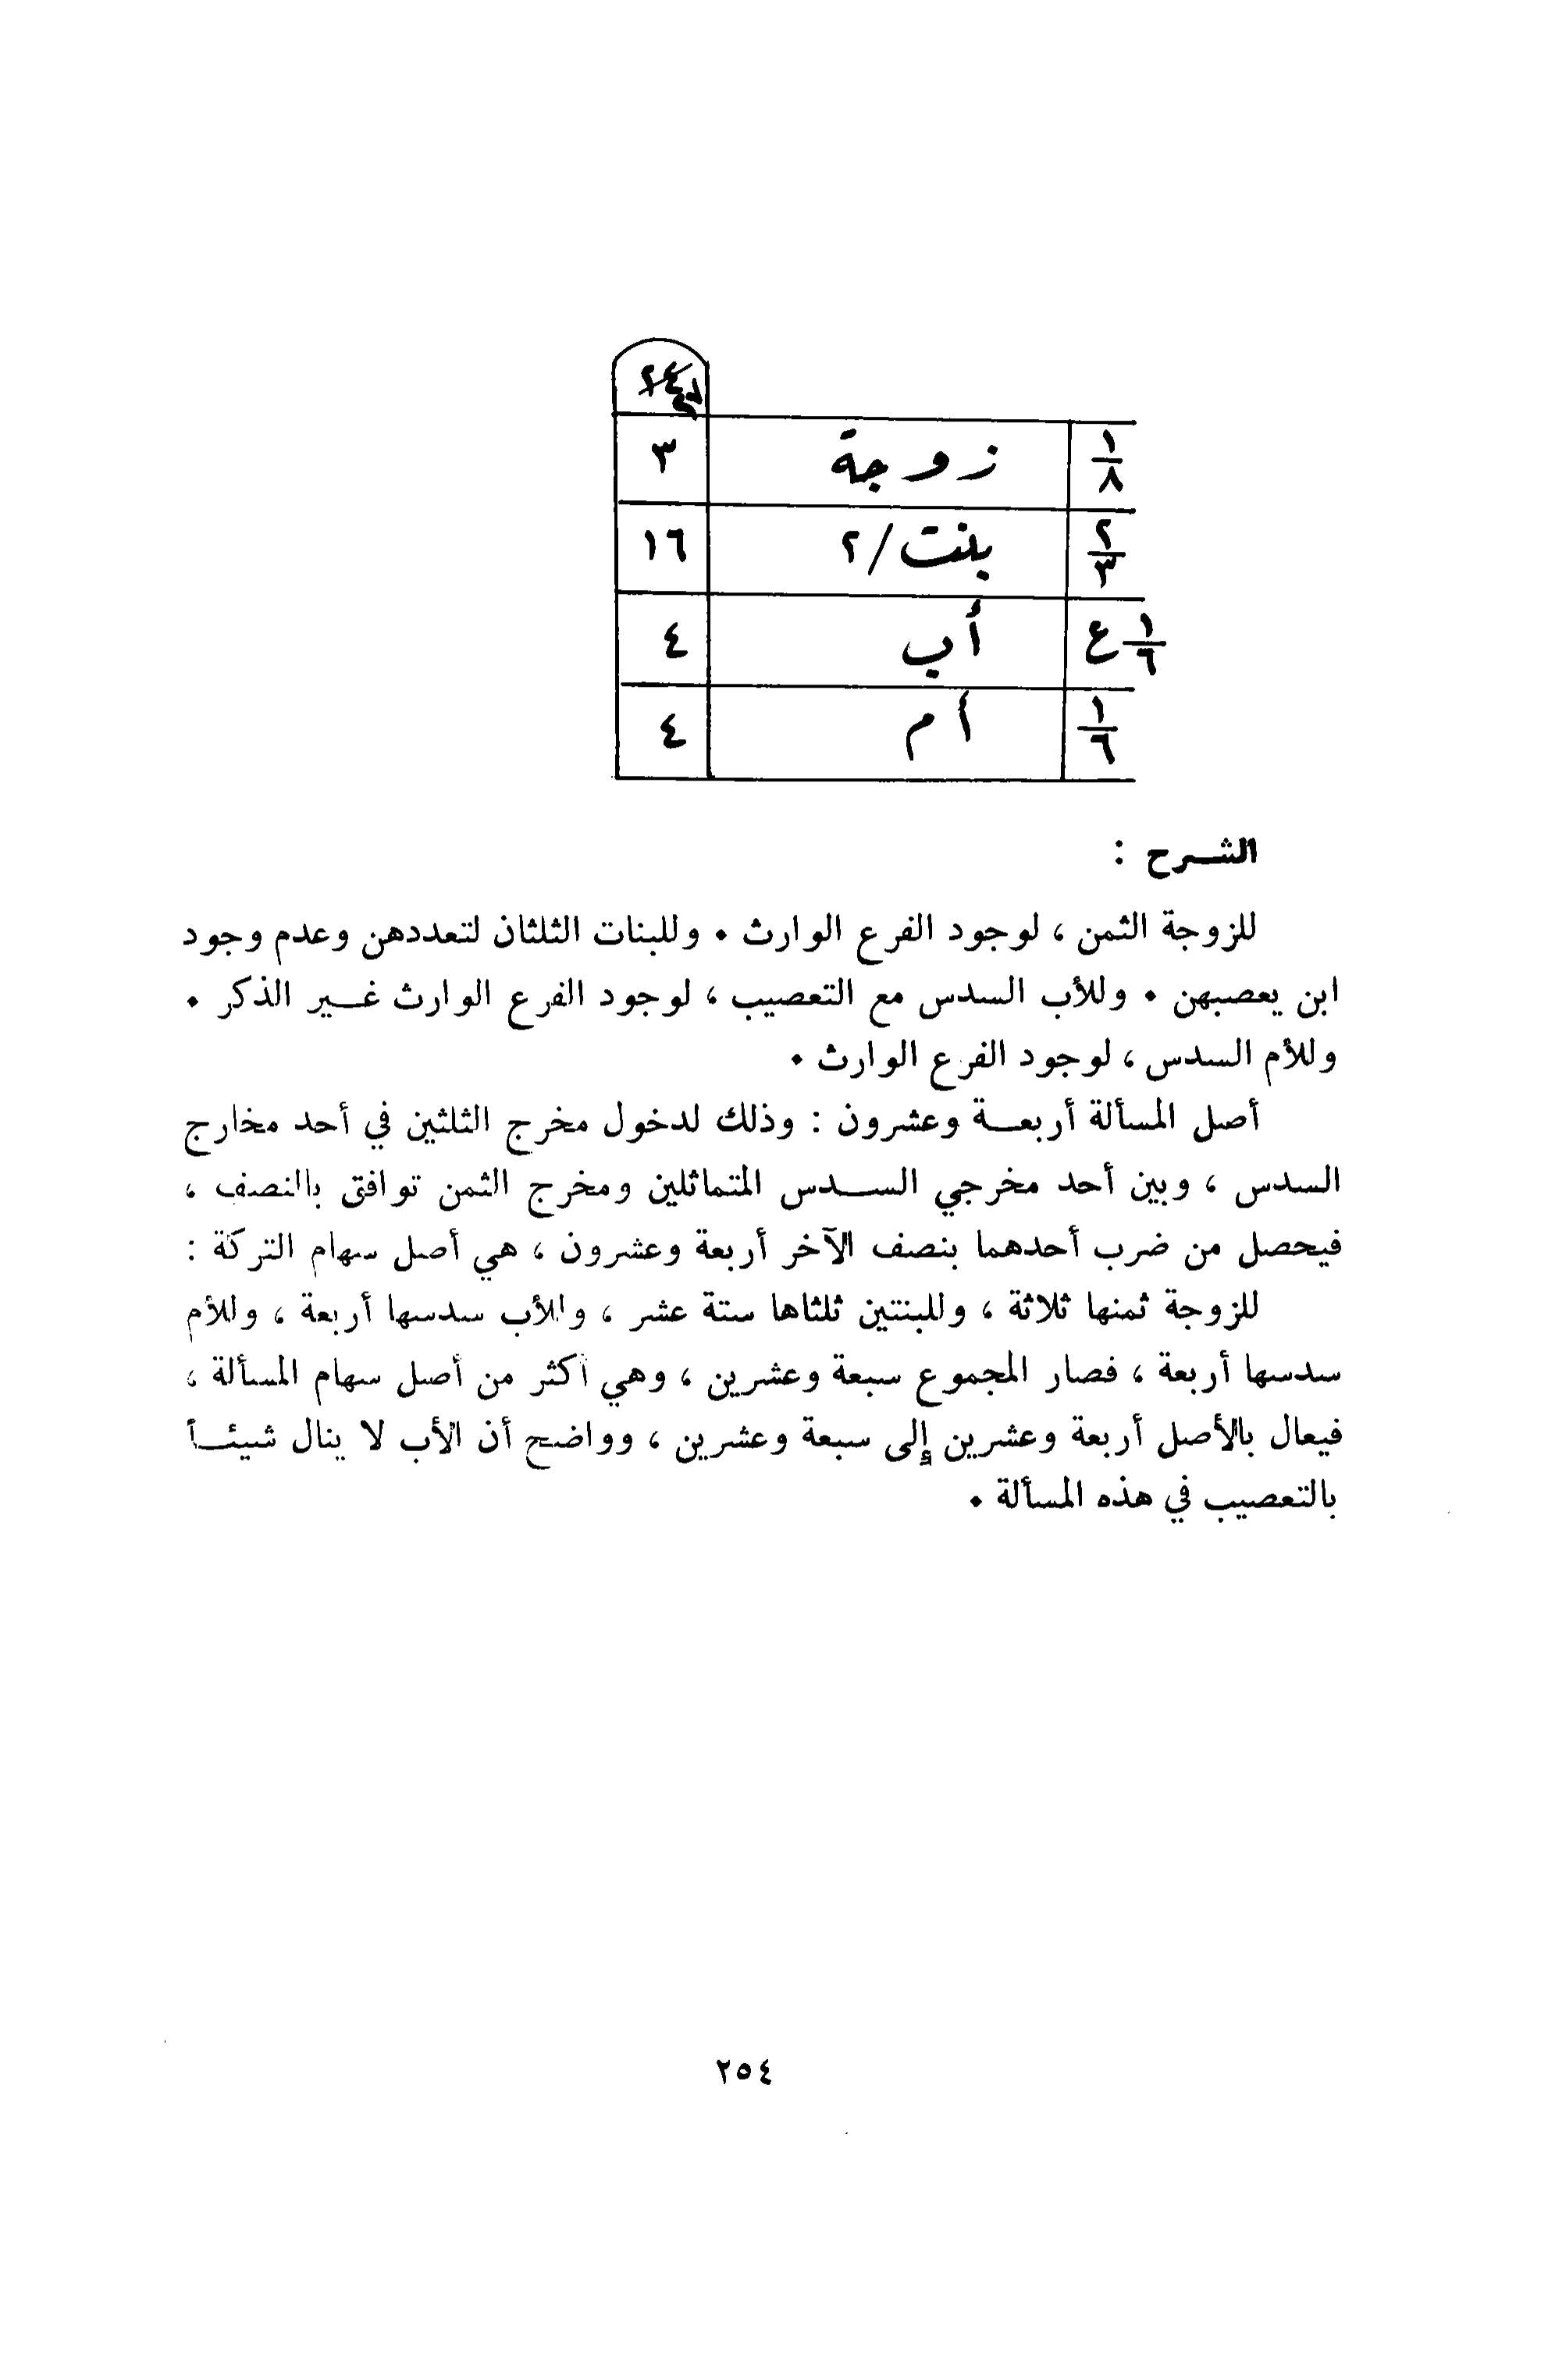 ٢٤ ٢٧
١/٨ زوجة ٣
٢/٣ بنت/٢ ١٦
١/٦ ع أب ٤
١/٦ أم ٤
الشرح :
للزوجة الثمن ، لوجود الفرع الوارث • وللبنات الثلثان لتعددهن وعدم وجود
ابن يعصبهن • وللأب السدس مع التعصيب ، لوجود الفرع الوارث غير الذكر •
وللأم السدس ، لوجود الفرع الوارث •
أصل المسألة أربعة وعشرون : وذلك لدخول مخرج الثلثين في أحد مخارج
السدس ، وبين أحد مخرجي السدس المتماثلين ومخرج الثمن توافق بالنصف ،
فيحصل من ضرب أحدهما بنصف الآخر أربعة وعشرون ، هي أصل سهام التركة :
للزوجة ثمنها ثلاثة ، وللبنتين ثلثاها ستة عشر ، وللأب سدسها أربعة ، وللأم
سدسها أربعة ، فصار المجموع سبعة وعشرين ، وهي أكثر من أصل سهام المسألة ،
فيعال بالأصل أربعة وعشرين إلى سبعة وعشرين ، وواضح أن الأب لا ينال شيئاً
بالتعصيب في هذه المسألة •
٢٥٤